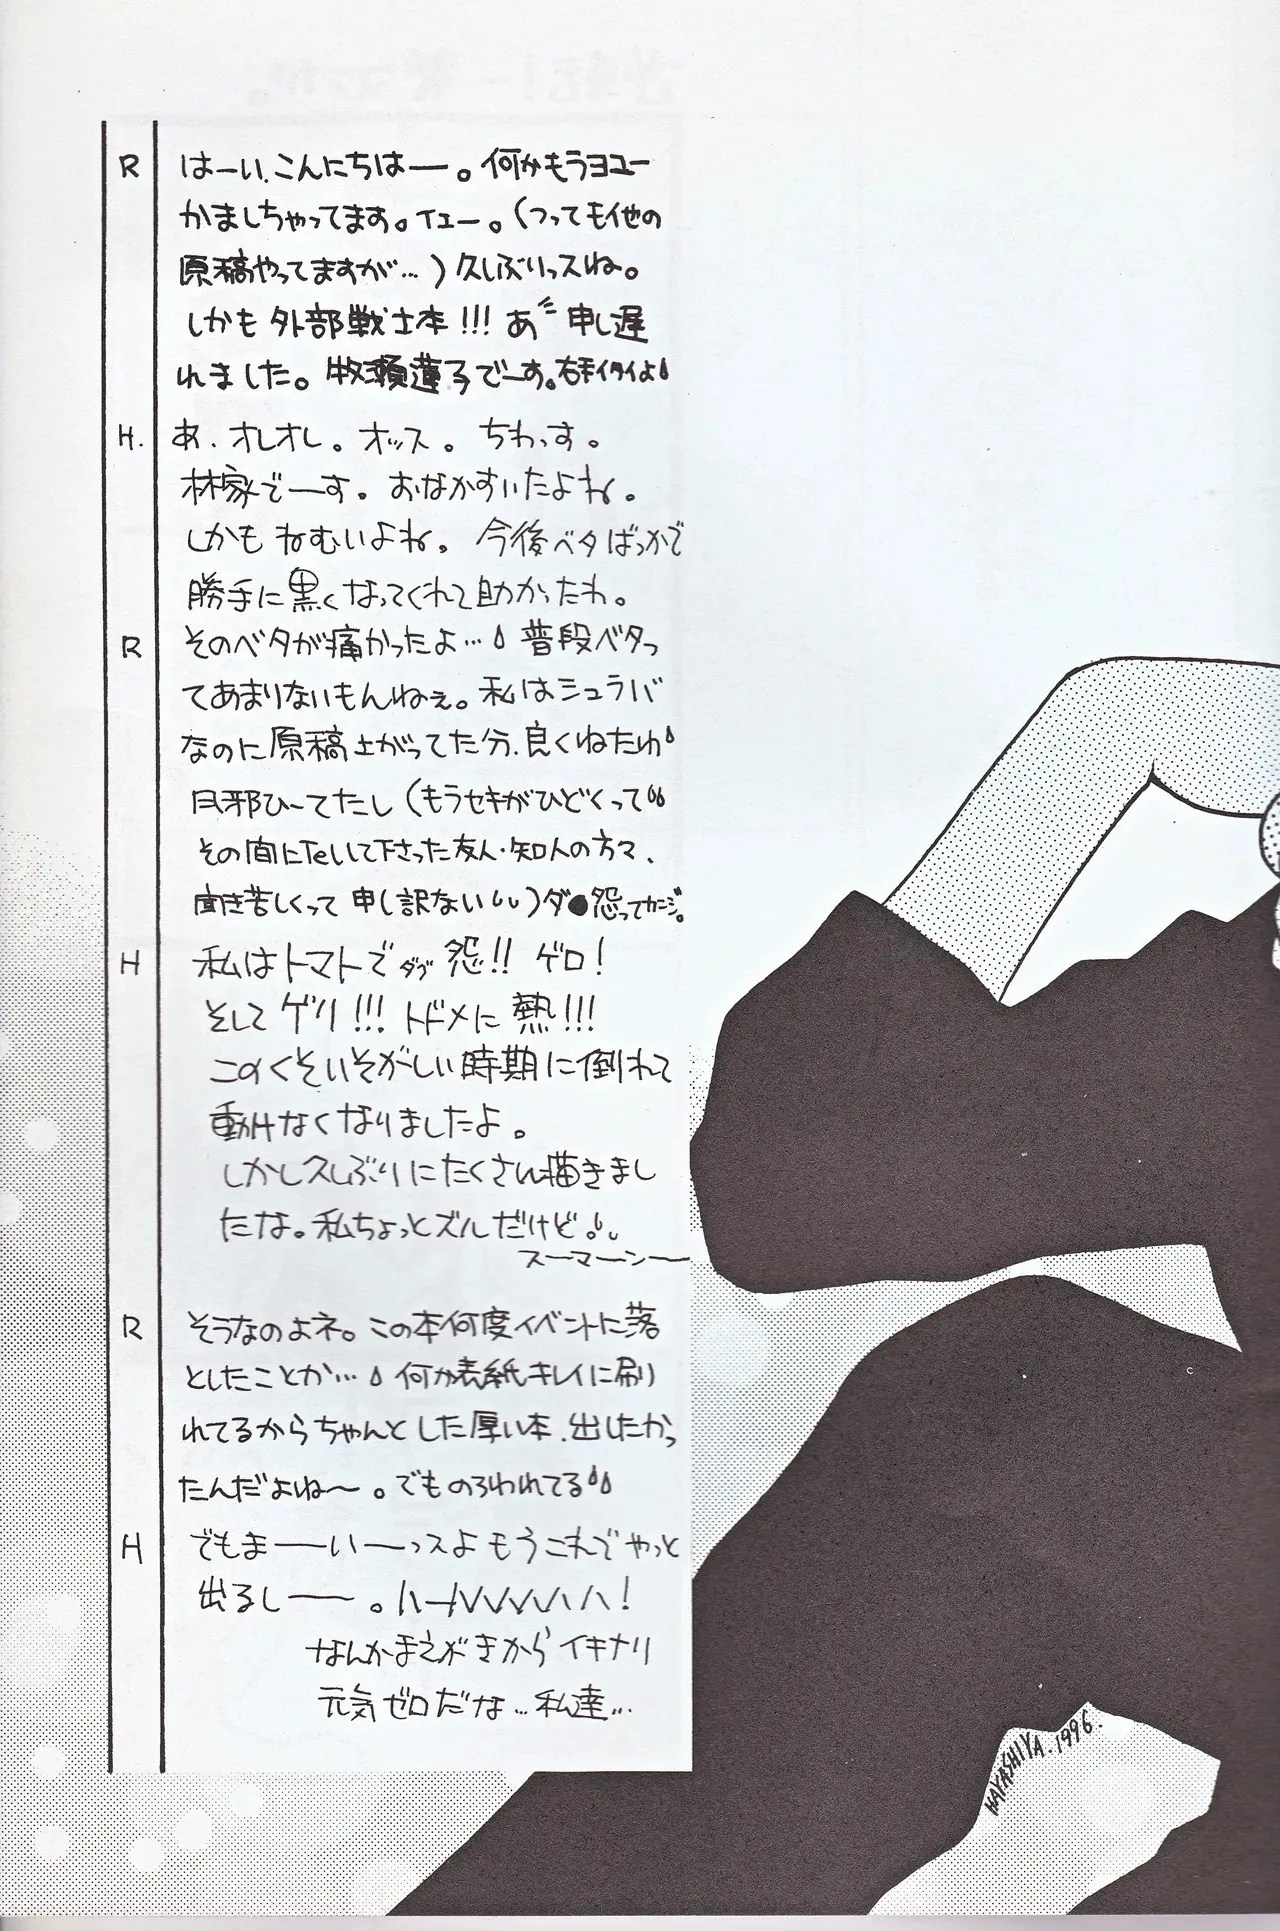 R はーい、こんにちはー。何かもうヨユー
かましちゃってます。イェー。(つっても他の
原稿やってますが…)久しぶりっスね。
しかも外部戦士本!!! あ 申し遅
れました。牧瀬蓮子でーす。右手イタイよ
H. あ、オレオレ。オッス。ちわっす。
林家でーす。おなかすいたよね。
しかもねむいよね。今後ベタばっかで
勝手に黒くなってくれて助かったわ。
R そのベタが痛かったよ… 普段ベタっ
てあまりないもんねぇ。私はシュラバ
なのに原稿上がってた分、良くねたわ
風邪ひーてたし(もうセキがひどくって
その間にTelいて下さった友人・知人の方々、
聞き苦しくって申し訳ない)ダ●怨ってカンジ。
H 私はトマトでダブ怨!! ゲロ!
そしてゲリ!!! トドメに熱!!!
このくそいそがしい時期に倒れて
動けなくなりましたよ。
しかし久しぶりにたくさん描きまし
たな。私ちょっとズルだけど。
スーマーンー
R そうなのよネ。この本何度イベントに落
としたことか… 何か表紙キレイに刷り
れてるからちゃんとした厚い本、出したかっ
たんだよね〜。でものろわれてる
H でもまーいーっスよもうこれでやっと
出るしー。ハーッハッハッハッハ!
なんかまえがきからイキナリ
元気ゼロだな…私達…
HAYASHIYA.1996.